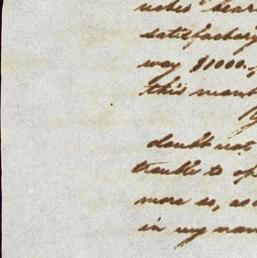 satisfactory
way $1000.
this mont
doubt not
trouble to op
more so, as
in my nam